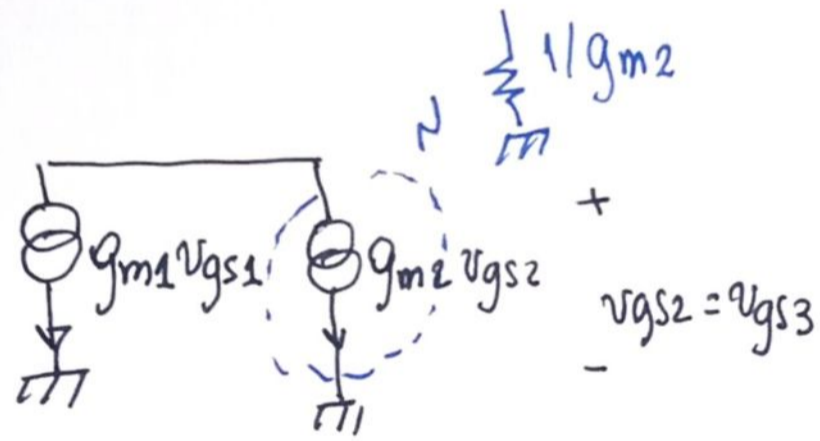 1/gm2
gm1vgs1
gm2vgs2
+
vgs2=vgs3
-